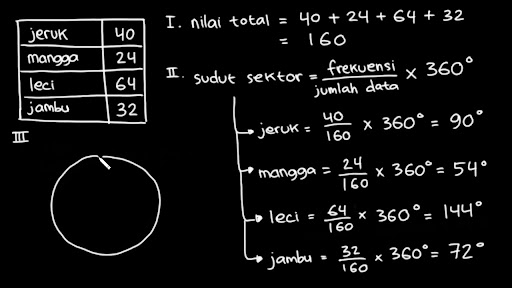 jeruk 40
mangga 24
leci 64
jambu 32
I. nilai total = 40 + 24 + 64 + 32
= 160
II. sudut sektor = frekuensi / jumlah data × 360°
jeruk = 40/160 × 360° = 90°
mangga = 24/160 × 360° = 54°
leci = 64/160 × 360° = 144°
jambu = 32/160 × 360° = 72°
III